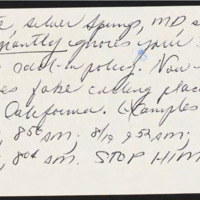 Silver Springs, MD, s
antly ignores your
call-in policy. Now
es fake calling place
California. Examples
, 8:50 AM; 8/19 9:52 AM;
, 8:04 AM. STOP HIM